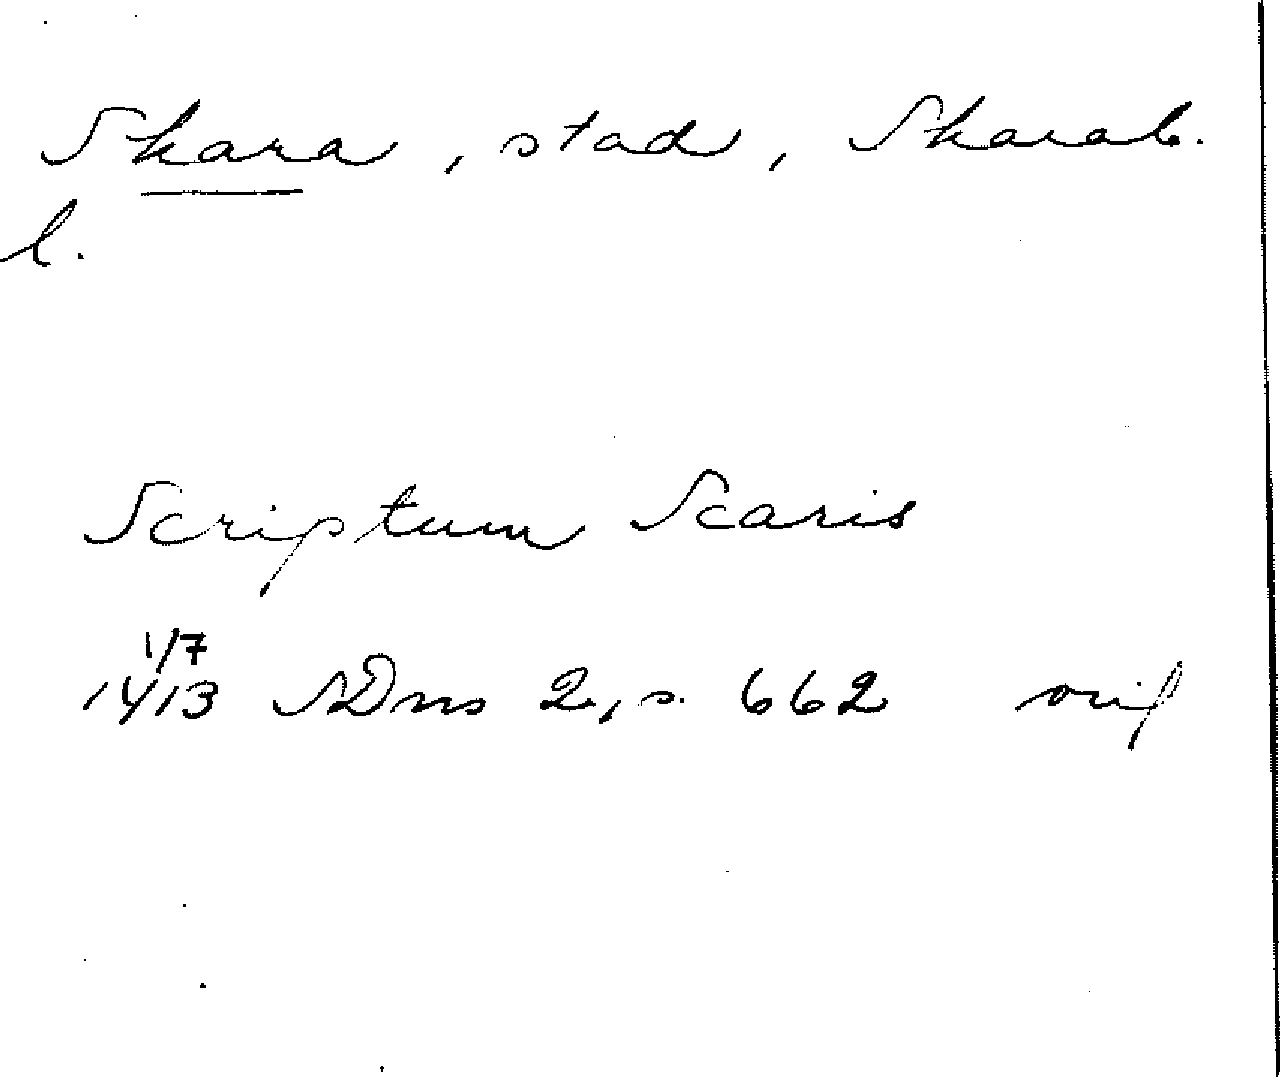 Skara, stad, Skarab.
l.
Scriptum Scaris
1/7
1413 SDns 2, s. 662 orig